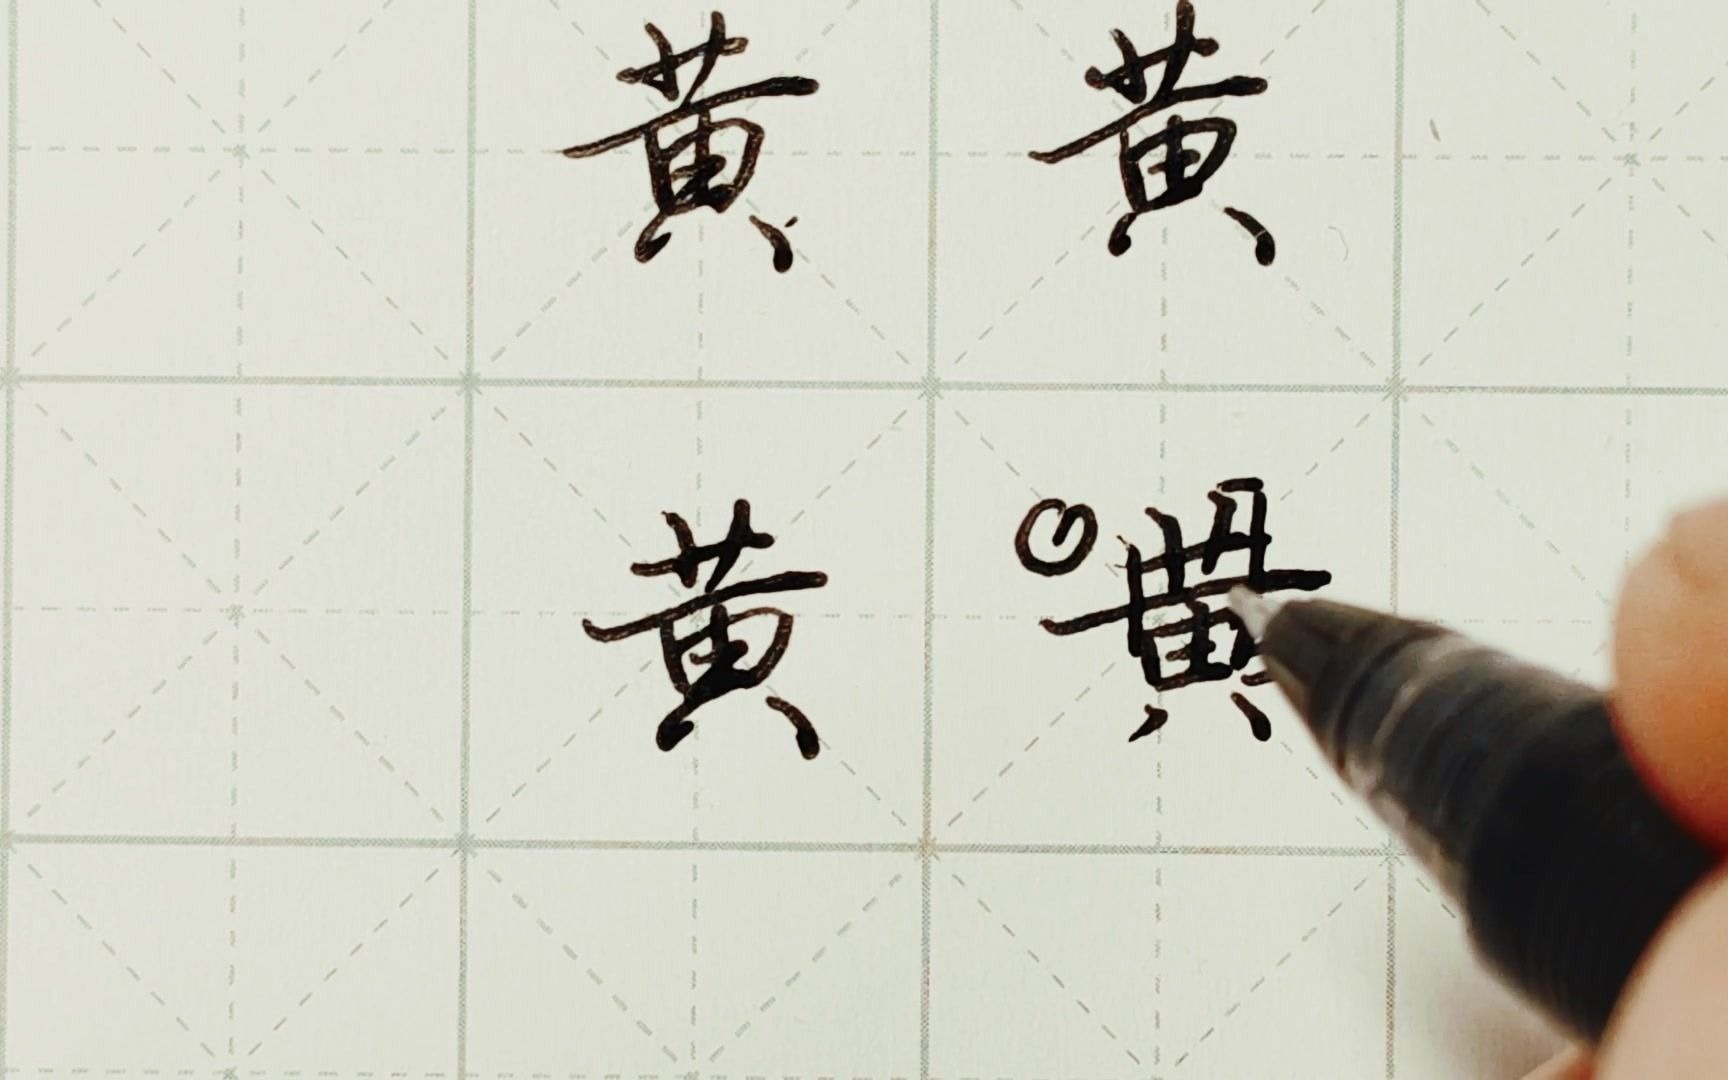 黄 黄
黄 黄